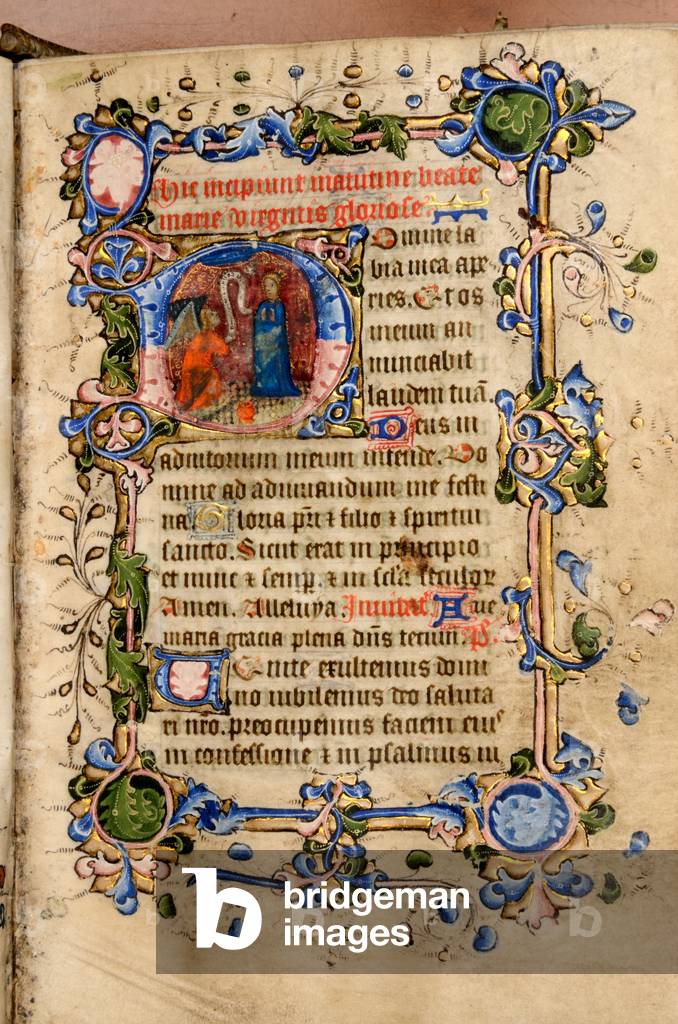 hic incipiunt matutine beate
marie virginis gloriose.
Omine la
bia mea ape
ries. Et os
meum an
nunciabit
laudem tuā.
Deus in
adiutorium meum intende. Do
mine ad adiuuandum me festi
na. Gloria pr̄i ⁊ filio ⁊ spiritui
sancto. Sicut erat in principio
et nunc ⁊ semp̲. ⁊ in scl̄a seculoꝝ
Amen. Alleluya Inuitat Aue
maria gracia plena dn̄s tecum. p̄s.
Uenite exultemus domi
no iubilemus deo saluta
ri nr̄o. preocupemus faciem eiuˢ
in confessione ⁊ in psalmus iu
bridgeman
images